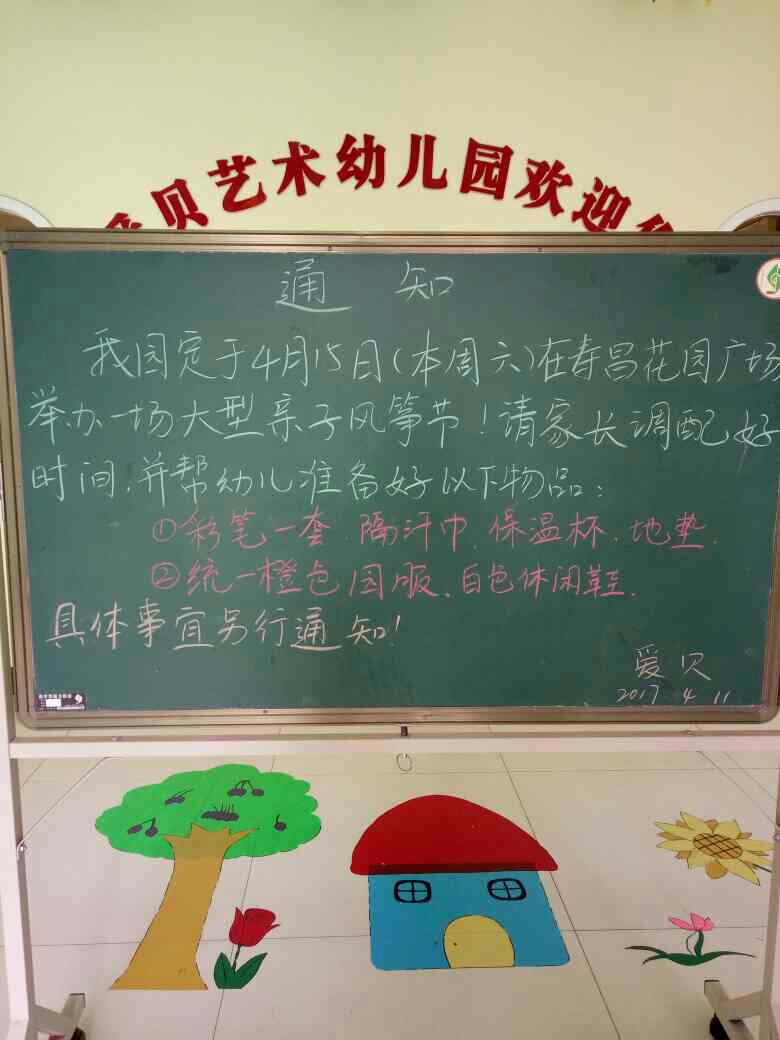 贝艺术幼儿园欢迎
通 知
我园定于4月15日(本周六)在寿昌花园广场
举办一场大型亲子风筝节!请家长调配好
时间,并帮幼儿准备好以下物品:
①彩笔一套、隔汗巾、保温杯、地垫.
②统一橙色园服、白色休闲鞋.
具体事宜另行通知!
爱贝
2017 4 11